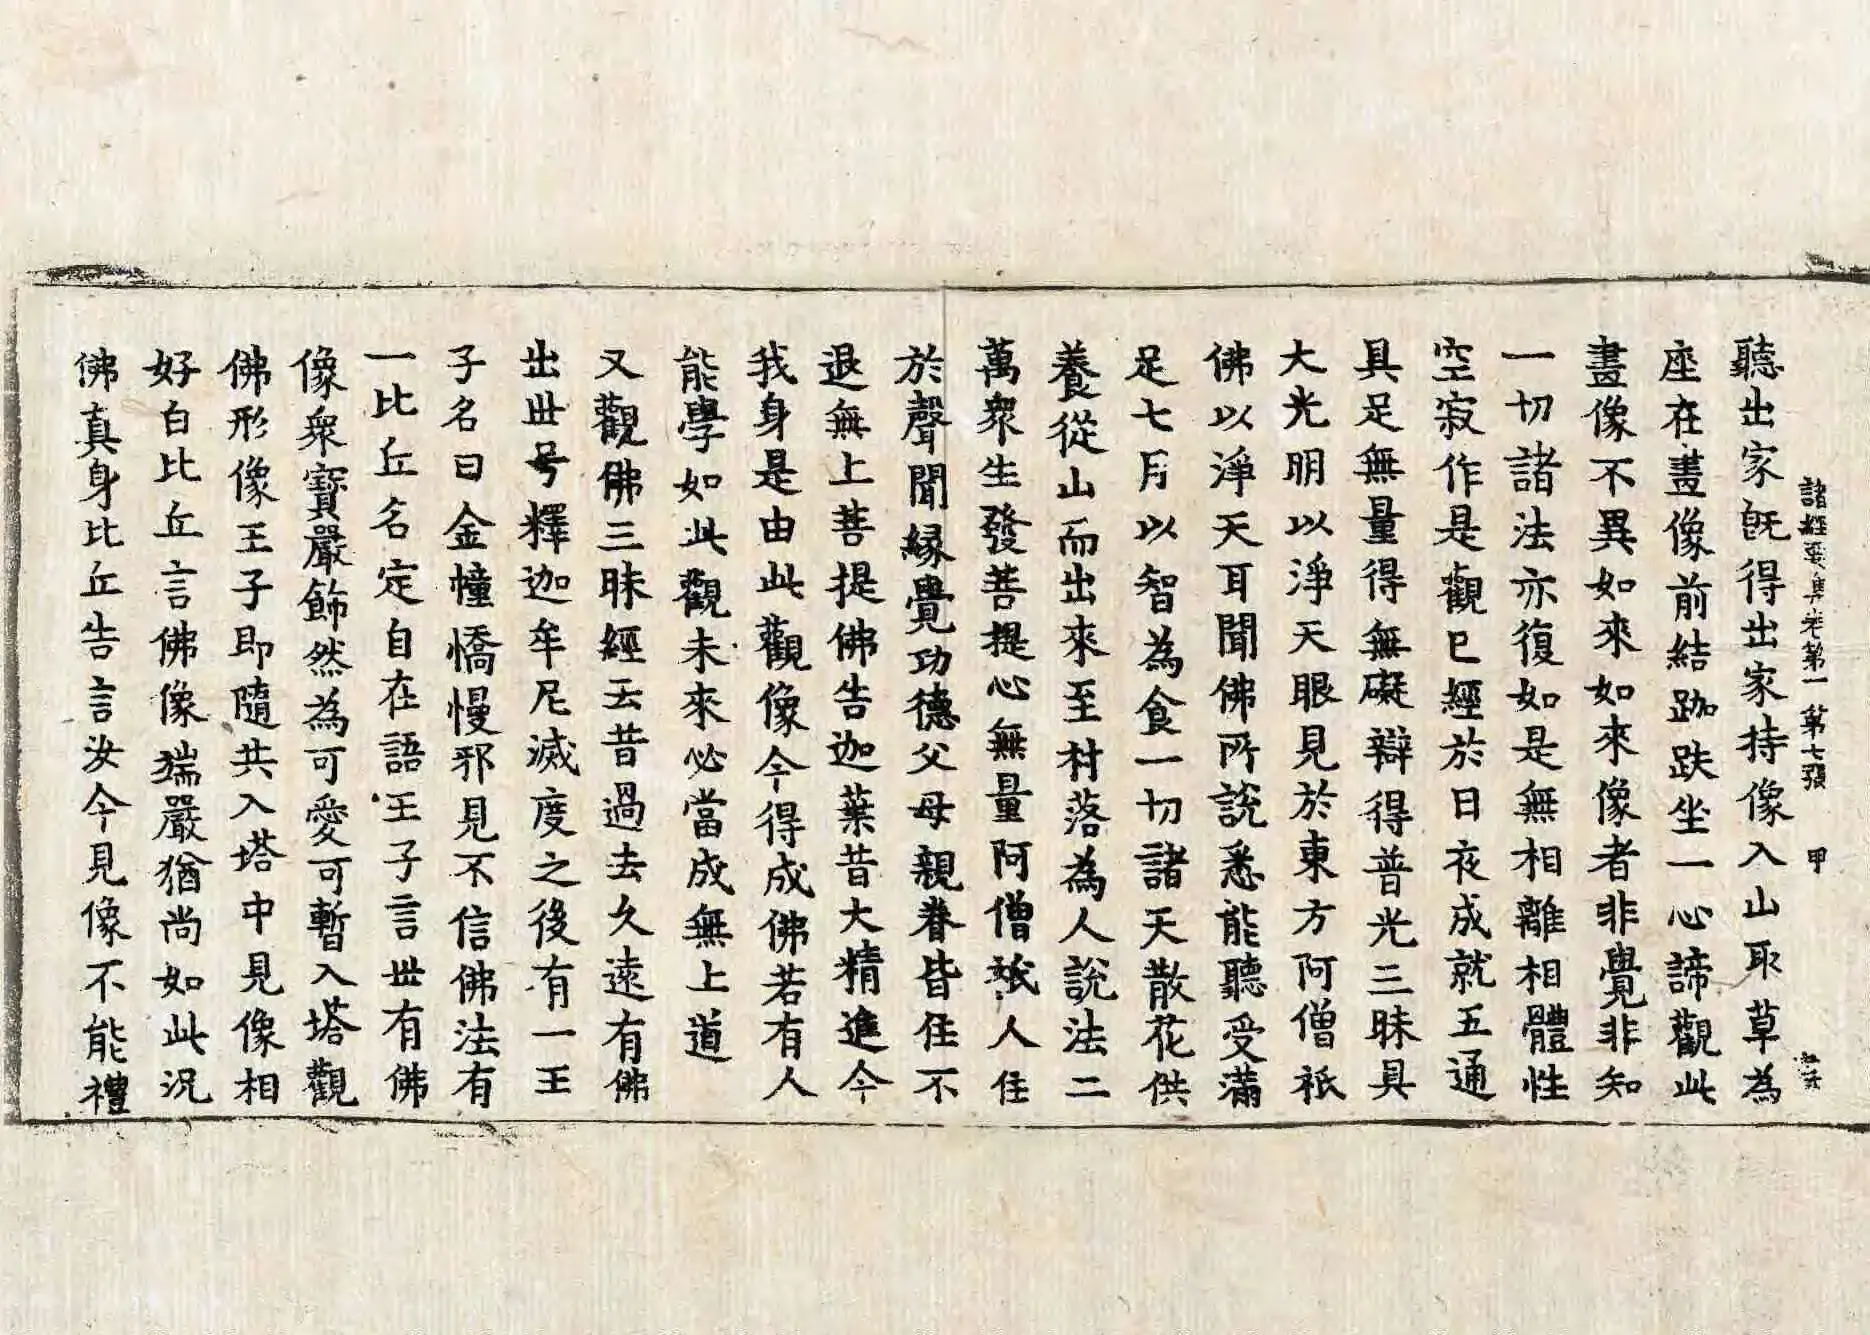 諸經要集卷第一 第七張 甲
聽出家旣得出家持像入山取草為
座在畫像前結跏趺坐一心諦觀此
畫像不異如來如來像者非覺非知
一切諸法亦復如是無相離相體性
空寂作是觀已經於日夜成就五通
具足無量得無礙辯得普光三昧具
大光明以淨天眼見於東方阿僧祇
佛以淨天耳聞佛所說悉能聽受滿
足七月以智為食一切諸天散花供
養從山而出來至村落為人說法二
萬衆生發菩提心無量阿僧祇人住
於聲聞緣覺功德父母親眷皆住不
退無上菩提佛告迦葉昔大精進今
我身是由此觀像今得成佛若有人
能學如此觀未來必當成無上道
又觀佛三昧經云昔過去久遠有佛
出世号釋迦牟尼滅度之後有一王
子名曰金幢憍慢邪見不信佛法有
一比丘名定自在語王子言世有佛
像衆寶嚴飾然為可愛可暫入塔觀
佛形像王子即隨共入塔中見像相
好白比丘言佛像端嚴猶尚如此況
佛真身比丘告言汝今見像不能禮